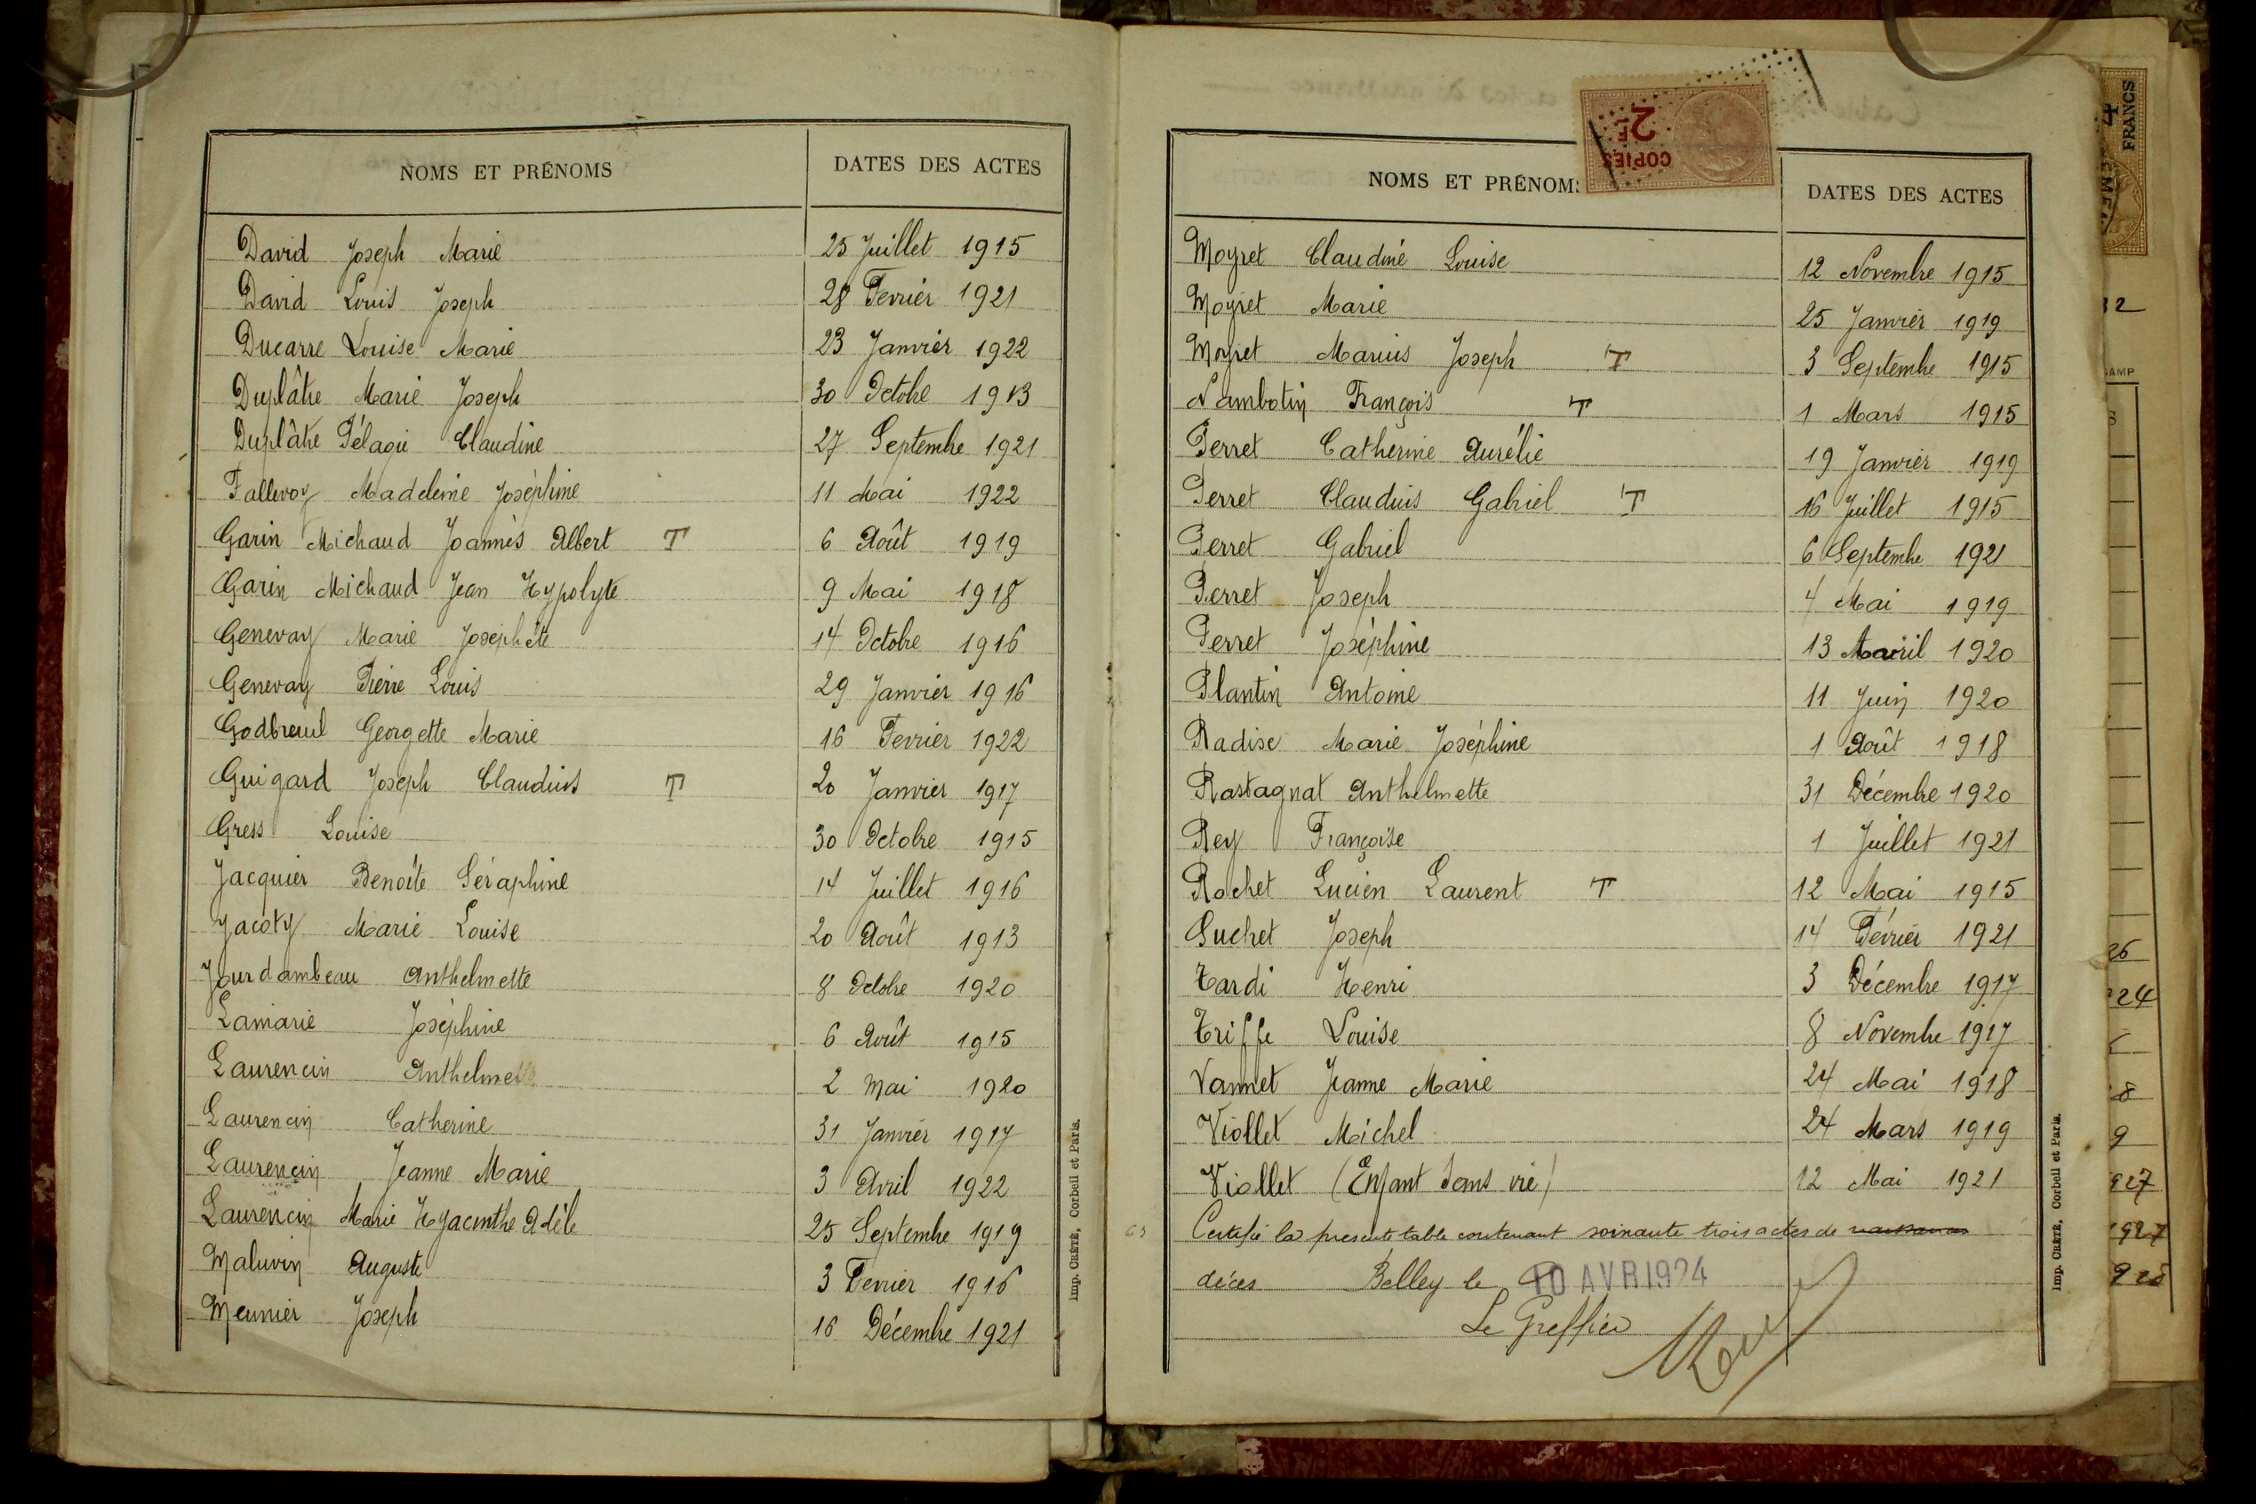 NOMS ET PRÉNOMS DATES DES ACTES
David Joseph Marie 25 Juillet 1915
David Louis Joseph 28 Fevrier 1921
Ducarre Louise Marie 23 Janvier 1922
Duplâtre Marie Joseph 30 Octobre 1913
Duplâtre Pélagie Claudine 27 Septembre 1921
Fallevoz Madeleine Joséphine 11 Mai 1922
Garin Michaud Joannès Albert T 6 Août 1919
Garin Michaud Jean Hypolyte 9 Mai 1918
Genevay Marie Josephète 14 Octobre 1916
Genevay Pierre Louis 29 Janvier 1916
Godbreuil Georgette Marie 16 Fevrier 1922
Guigard Joseph Claudius T 20 Janvier 1917
Gress Louise 30 Octobre 1915
Jacquier Benoîte Séraphine 14 Juillet 1916
Jacoty Marie Louise 20 Août 1913
Jourdambeau Anthelmette 8 Octobre 1920
Lamarie Joséphine 6 Août 1915
Laurencin Anthelme 2 Mai 1920
Laurencin Catherine 31 Janvier 1917
Laurencin Jeanne Marie 3 Avril 1922
Laurencin Marie Hyacinthe Adèle 25 Septembre 1919
Maluvin Auguste 3 Fevrier 1916
Meunier Joseph 16 Décembre 1921
Imp. CRÉTÉ, Corbeil et Paris.
COPIES 2F
NOMS ET PRÉNOMS DATES DES ACTES
Moyret Claudine Louise 12 Novembre 1915
Moyret Marie 25 Janvier 1919
Moyret Marius Joseph T 3 Septembre 1915
Nambotin François T 1 Mars 1915
Perret Catherine Aurélie 19 Janvier 1919
Perret Claudius Gabriel T 16 Juillet 1915
Perret Gabriel 6 Septembre 1921
Perret Joseph 4 Mai 1919
Perret Joséphine 13 Avril 1920
Plantin Antoine 11 Juin 1920
Radise Marie Joséphine 1 Août 1918
Rastagnat Anthelmette 31 Décembre 1920
Rey Françoise 1 Juillet 1921
Rochet Lucien Laurent T 12 Mai 1915
Suchet Joseph 14 Février 1921
Tardi Henri 3 Décembre 1917
Triffe Louise 8 Novembre 1917
Vannet Jeanne Marie 24 Mai 1918
Viollet Michel 24 Mars 1919
Viollet (Enfant Sans vie) 12 Mai 1921
63 Certifié la presente table contenant soixante trois actes de naissances
décès Belley le 10 AVR 1924
Le Greffier
Imp. CRÉTÉ, Corbeil et Paris.
4 FRANCS
32
26
24
8
9
927
1927